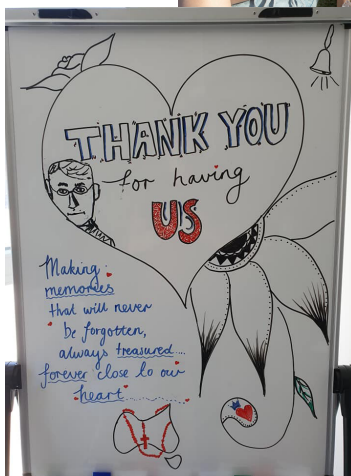 THANK YOU
for having
US
Making
memories
that will never
be forgotten,
always treasured....
forever close to our
heart